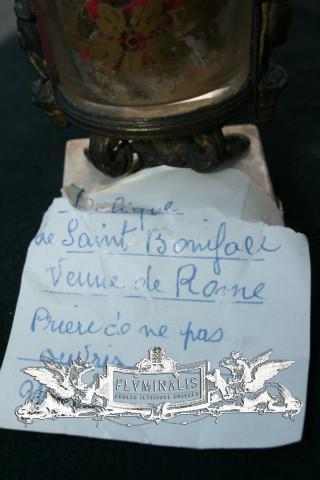 Relique
de Saint Boniface
Venue de Rome
Prière de ne pas
ouvrir
FLVMINALIS